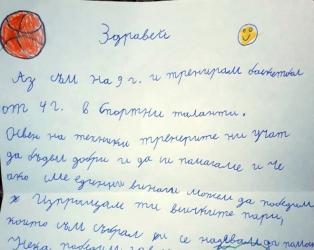 Здравей
Аз съм на 9 г. и тренирам баскетбол
от 4 г. в Спортни таланти.
Освен на техники треньорите ни учат
да бъдем добри и да си помагаме и че
ако сме единни винаги можем да победим
Изпращам ти всичките пари,
които съм събрал и се надявам да помог
Нека победим